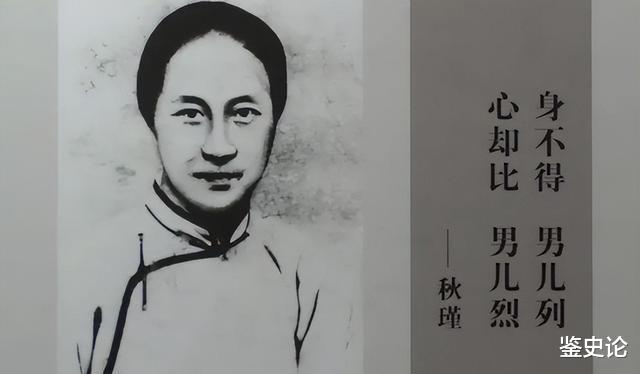 身不得 男儿列
心却比 男儿烈
——秋瑾
鉴史论